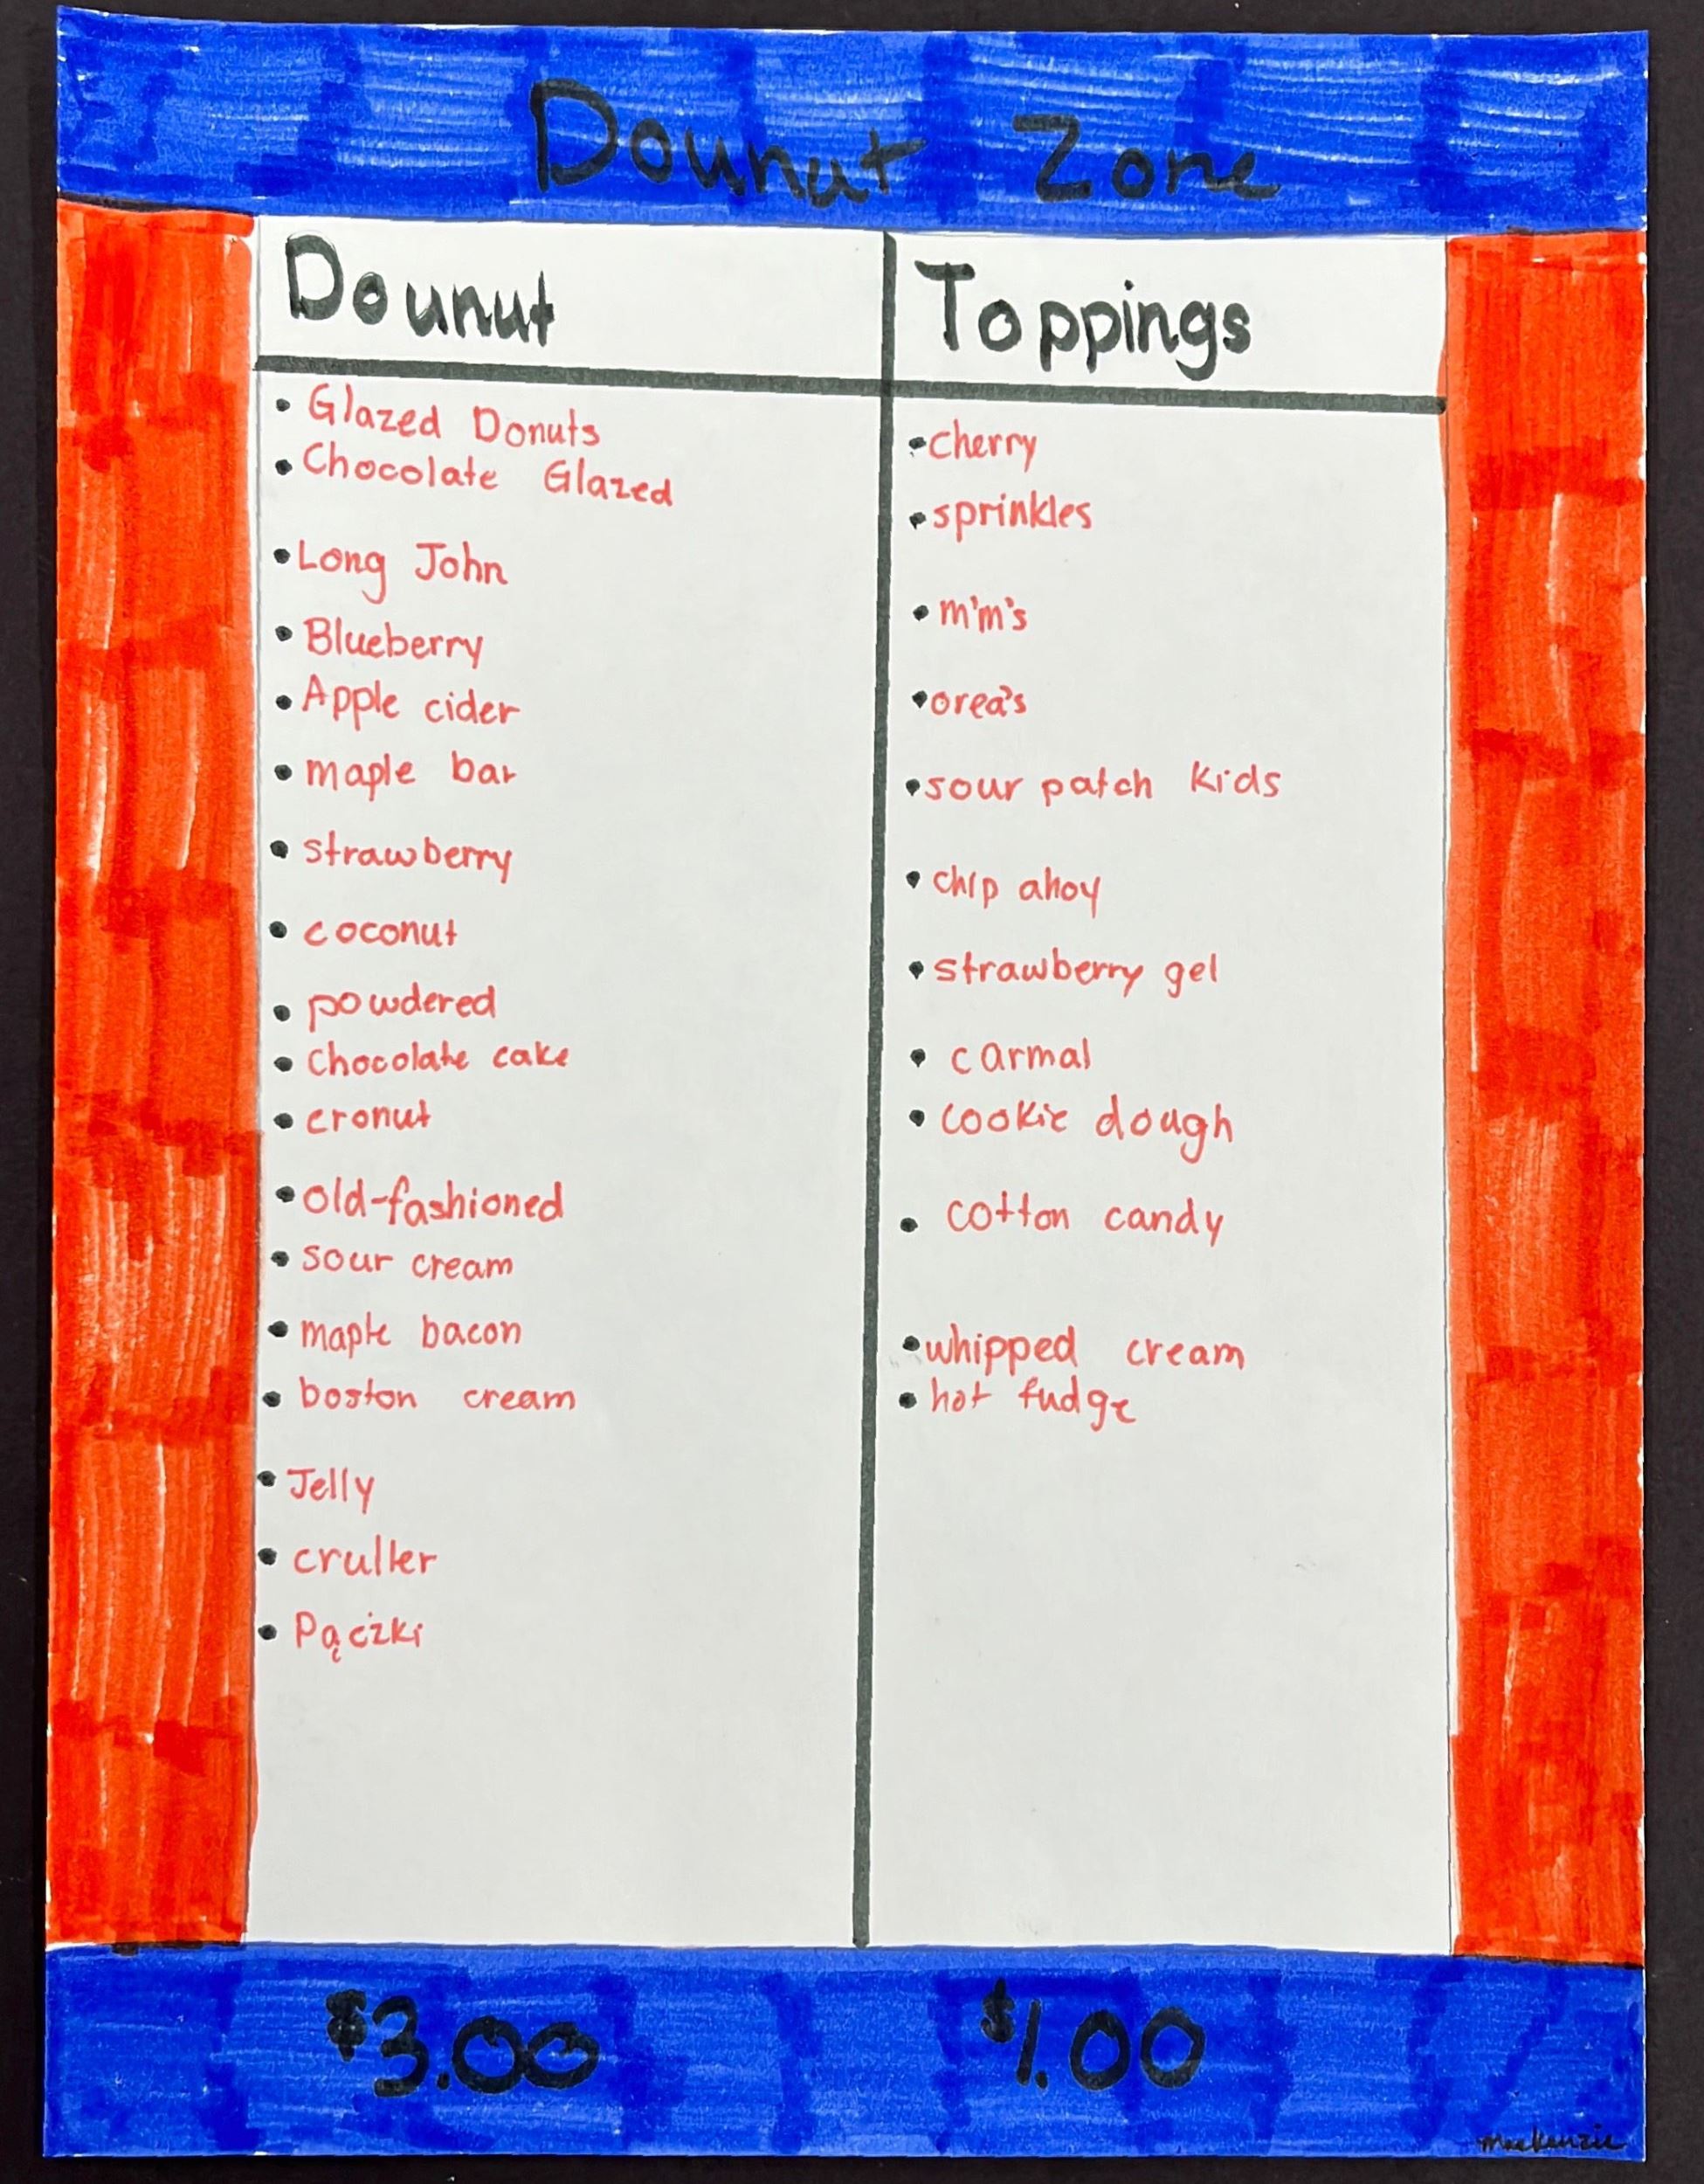 Dounut Zone
Dounut
Toppings
• Glazed Donuts
• Chocolate Glazed
• Long John
• Blueberry
• Apple cider
• maple bar
• strawberry
• coconut
• powdered
• Chocolate cake
• cronut
• old-fashioned
• sour cream
• maple bacon
• boston cream
• Jelly
• cruller
• Pączki
• cherry
• sprinkles
• m'm's
• orea's
• sour patch kids
• chip ahoy
• strawberry gel
• carmal
• cookie dough
• cotton candy
• whipped cream
• hot fudge
$3.00
$1.00
mackenzie